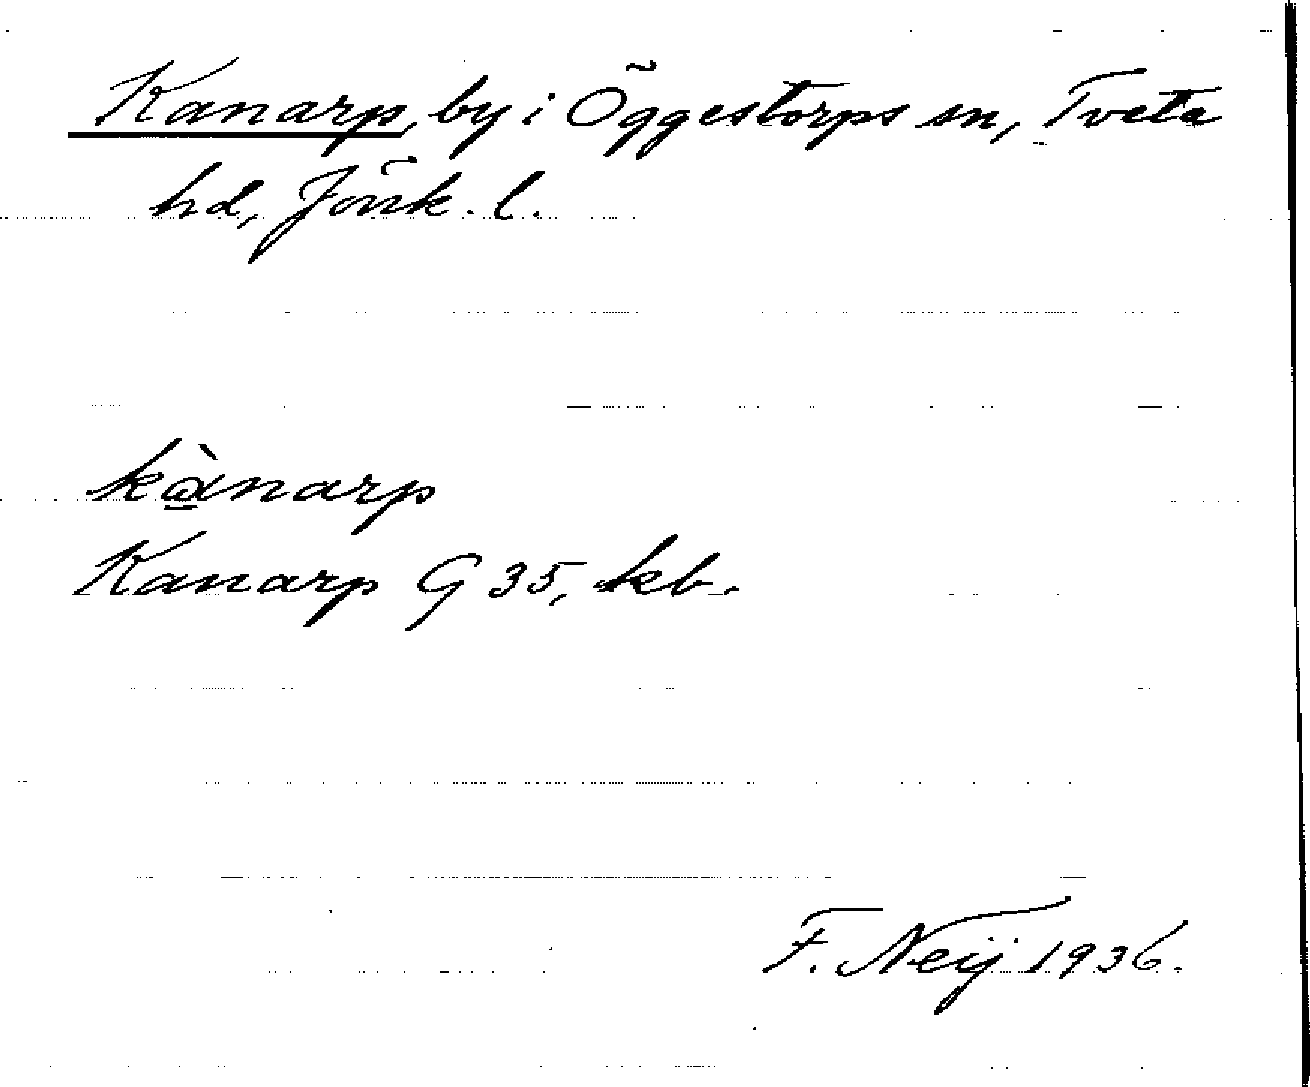 Kanarp, by i Öggestorps sn, Tveta
hd, Jönk. l.
kà̱narp
Kanarp G 35, kb.
F. Neij 1936.